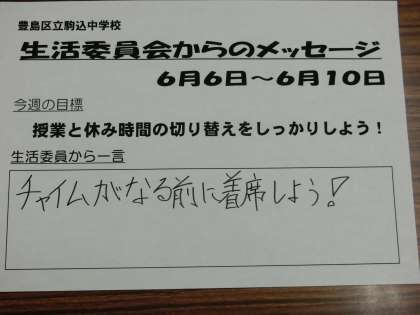 豊島区立駒込中学校
生活委員会からのメッセージ
6月6日～6月10日
今週の目標
授業と休み時間の切り替えをしっかりしよう！
生活委員から一言
チャイムがなる前に着席しよう！